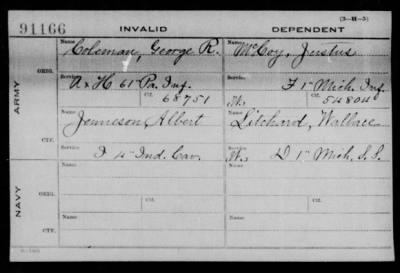 (3-H-5)
91166 INVALID DEPENDENT
Name Name
Coleman, George R. McCoy, Justus
ORIG.
Service Service
A & H 61 Pa. Inf. F 1" Mich. Inf.
Ctf. Ctf.
68751 W. 54804
ARMY
Name Name
Jenneson, Albert Litchard, Wallace
CTF.
Service Service
I 4" Ind. Cav. W. D 1" Mich. S.S.
Name Name
ORIG.
Service Ctf. Service Ctf.
NAVY
Name Name
CTF.
Service Service